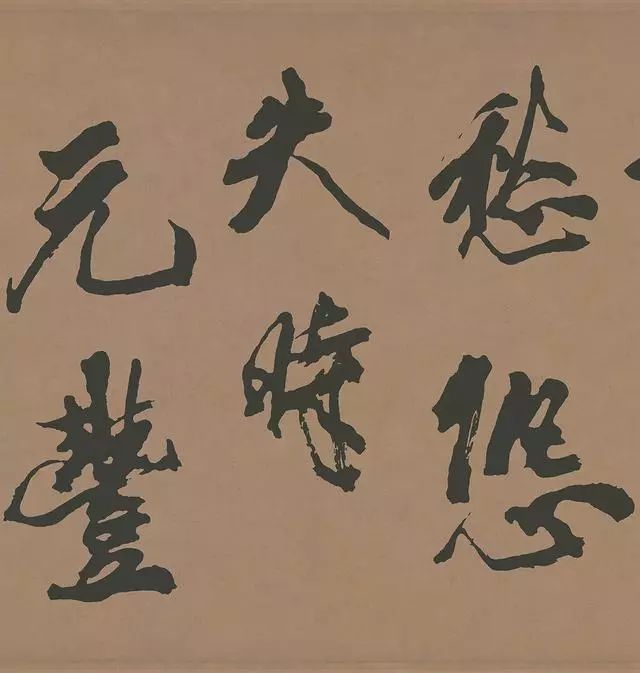 愁悠
失時
元豐